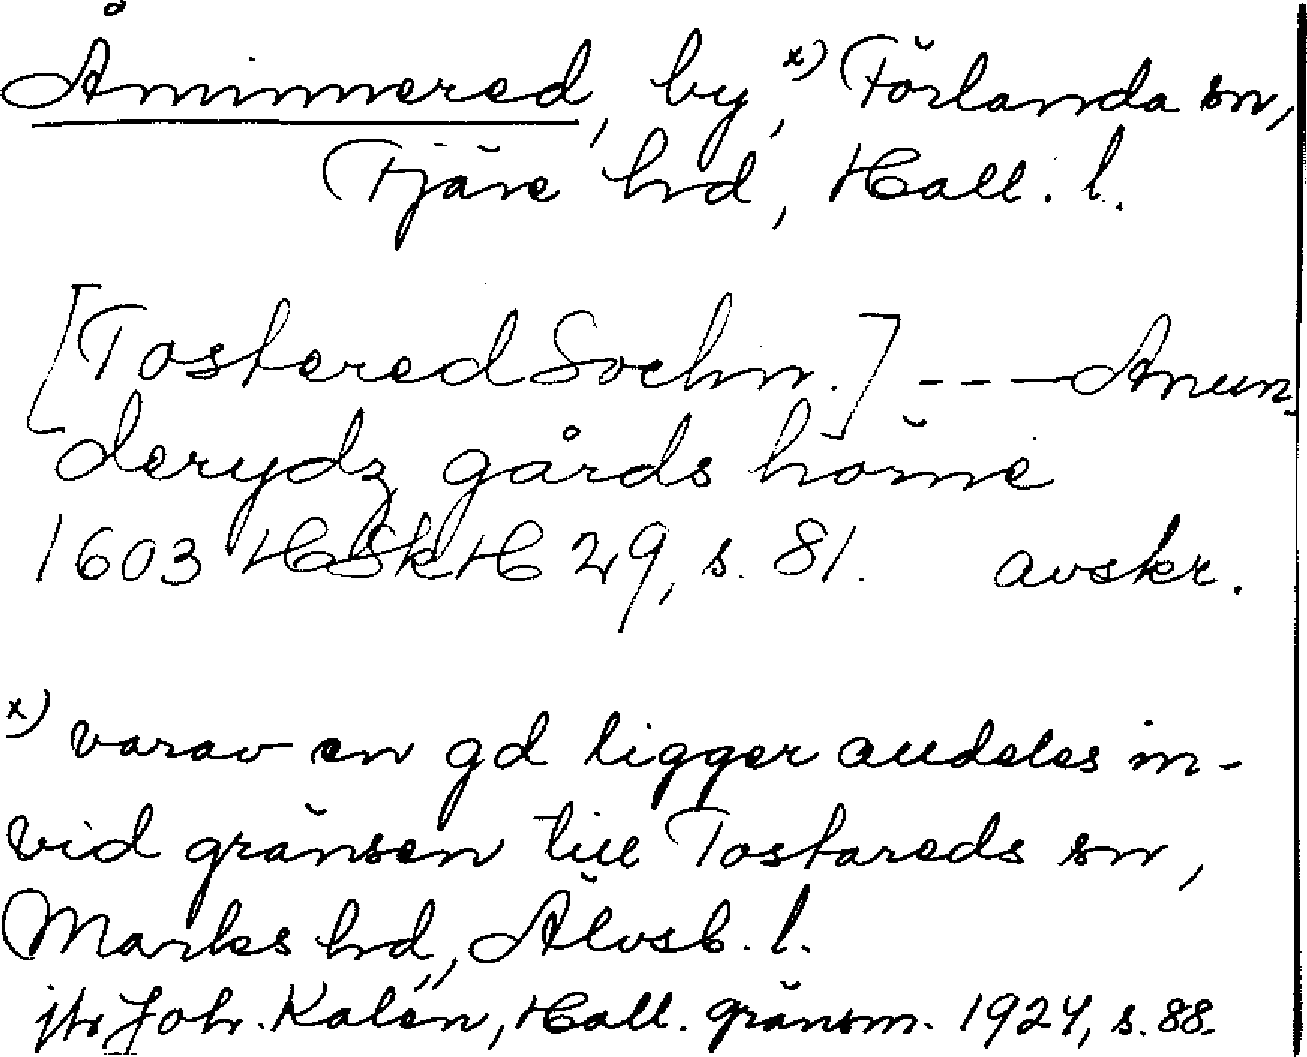 Åminnered, by,ˣ⁾ Förlanda sn,
Fjäre hd, Hall. l.
[Tostered Sochn.] - - - Anun-
derydz gårds höme
1603 HSkH 29, s. 81. avskr.
x) varav en gd ligger alldeles in-
vid gränsen till Tostareds sn,
Marks hd, Älvsb. l.
jfr Joh. Kalén, Hall. gränsm. 1924, s. 88.